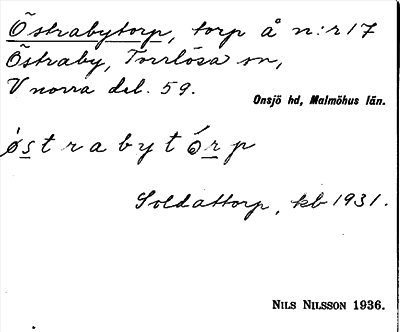 Östrabytorp, torp å n:r 17
Östraby, Torrlösa sn,
V norra del. 59.
Onsjö hd, Malmöhus län.
ǿs̲trabytór̲p
Soldattorp, kb 1931.
NILS NILSSON 1936.